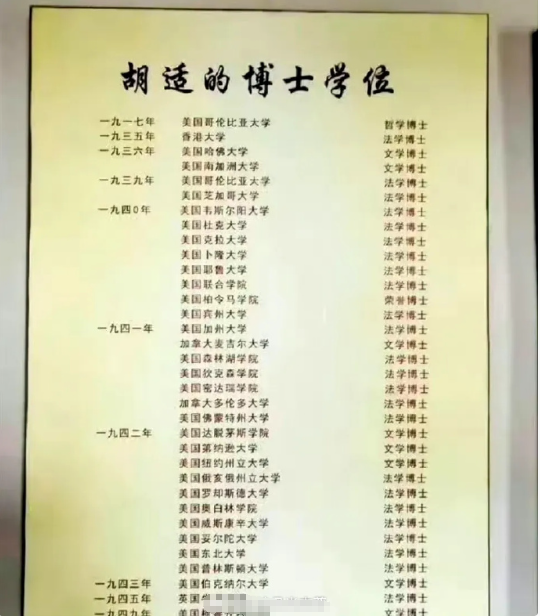 胡适的博士学位
一九一七年 美国哥伦比亚大学 哲学博士
一九三五年 香港大学 法学博士
一九三六年 美国哈佛大学 文学博士
美国南加洲大学 文学博士
一九三九年 美国哥伦比亚大学 法学博士
美国芝加哥大学 法学博士
一九四0年 美国韦斯尔阳大学 法学博士
美国杜克大学 法学博士
美国克拉大学 法学博士
美国卜隆大学 法学博士
美国耶鲁大学 法学博士
美国联合学院 法学博士
美国柏令马学院 荣誉博士
美国宾州大学 法学博士
一九四一年 美国加州大学 法学博士
加拿大麦吉尔大学 文学博士
美国森林湖学院 法学博士
美国狄克森学院 法学博士
美国蜜达瑞学院 法学博士
加拿大多伦多大学 法学博士
美国佛蒙特州大学 法学博士
一九四二年 美国达脱茅斯学院 文学博士
美国第纳逊大学 文学博士
美国纽约州立大学 文学博士
美国俄亥俄州立大学 法学博士
美国罗却斯德大学 法学博士
美国奥白林学院 法学博士
美国威斯康辛大学 法学博士
美国妥尔陀大学 法学博士
美国东北大学 法学博士
美国普林斯顿大学 法学博士
一九四三年 美国伯克纳尔大学 文学博士
一九四五年 英国 法学博士
一九四九年 美国